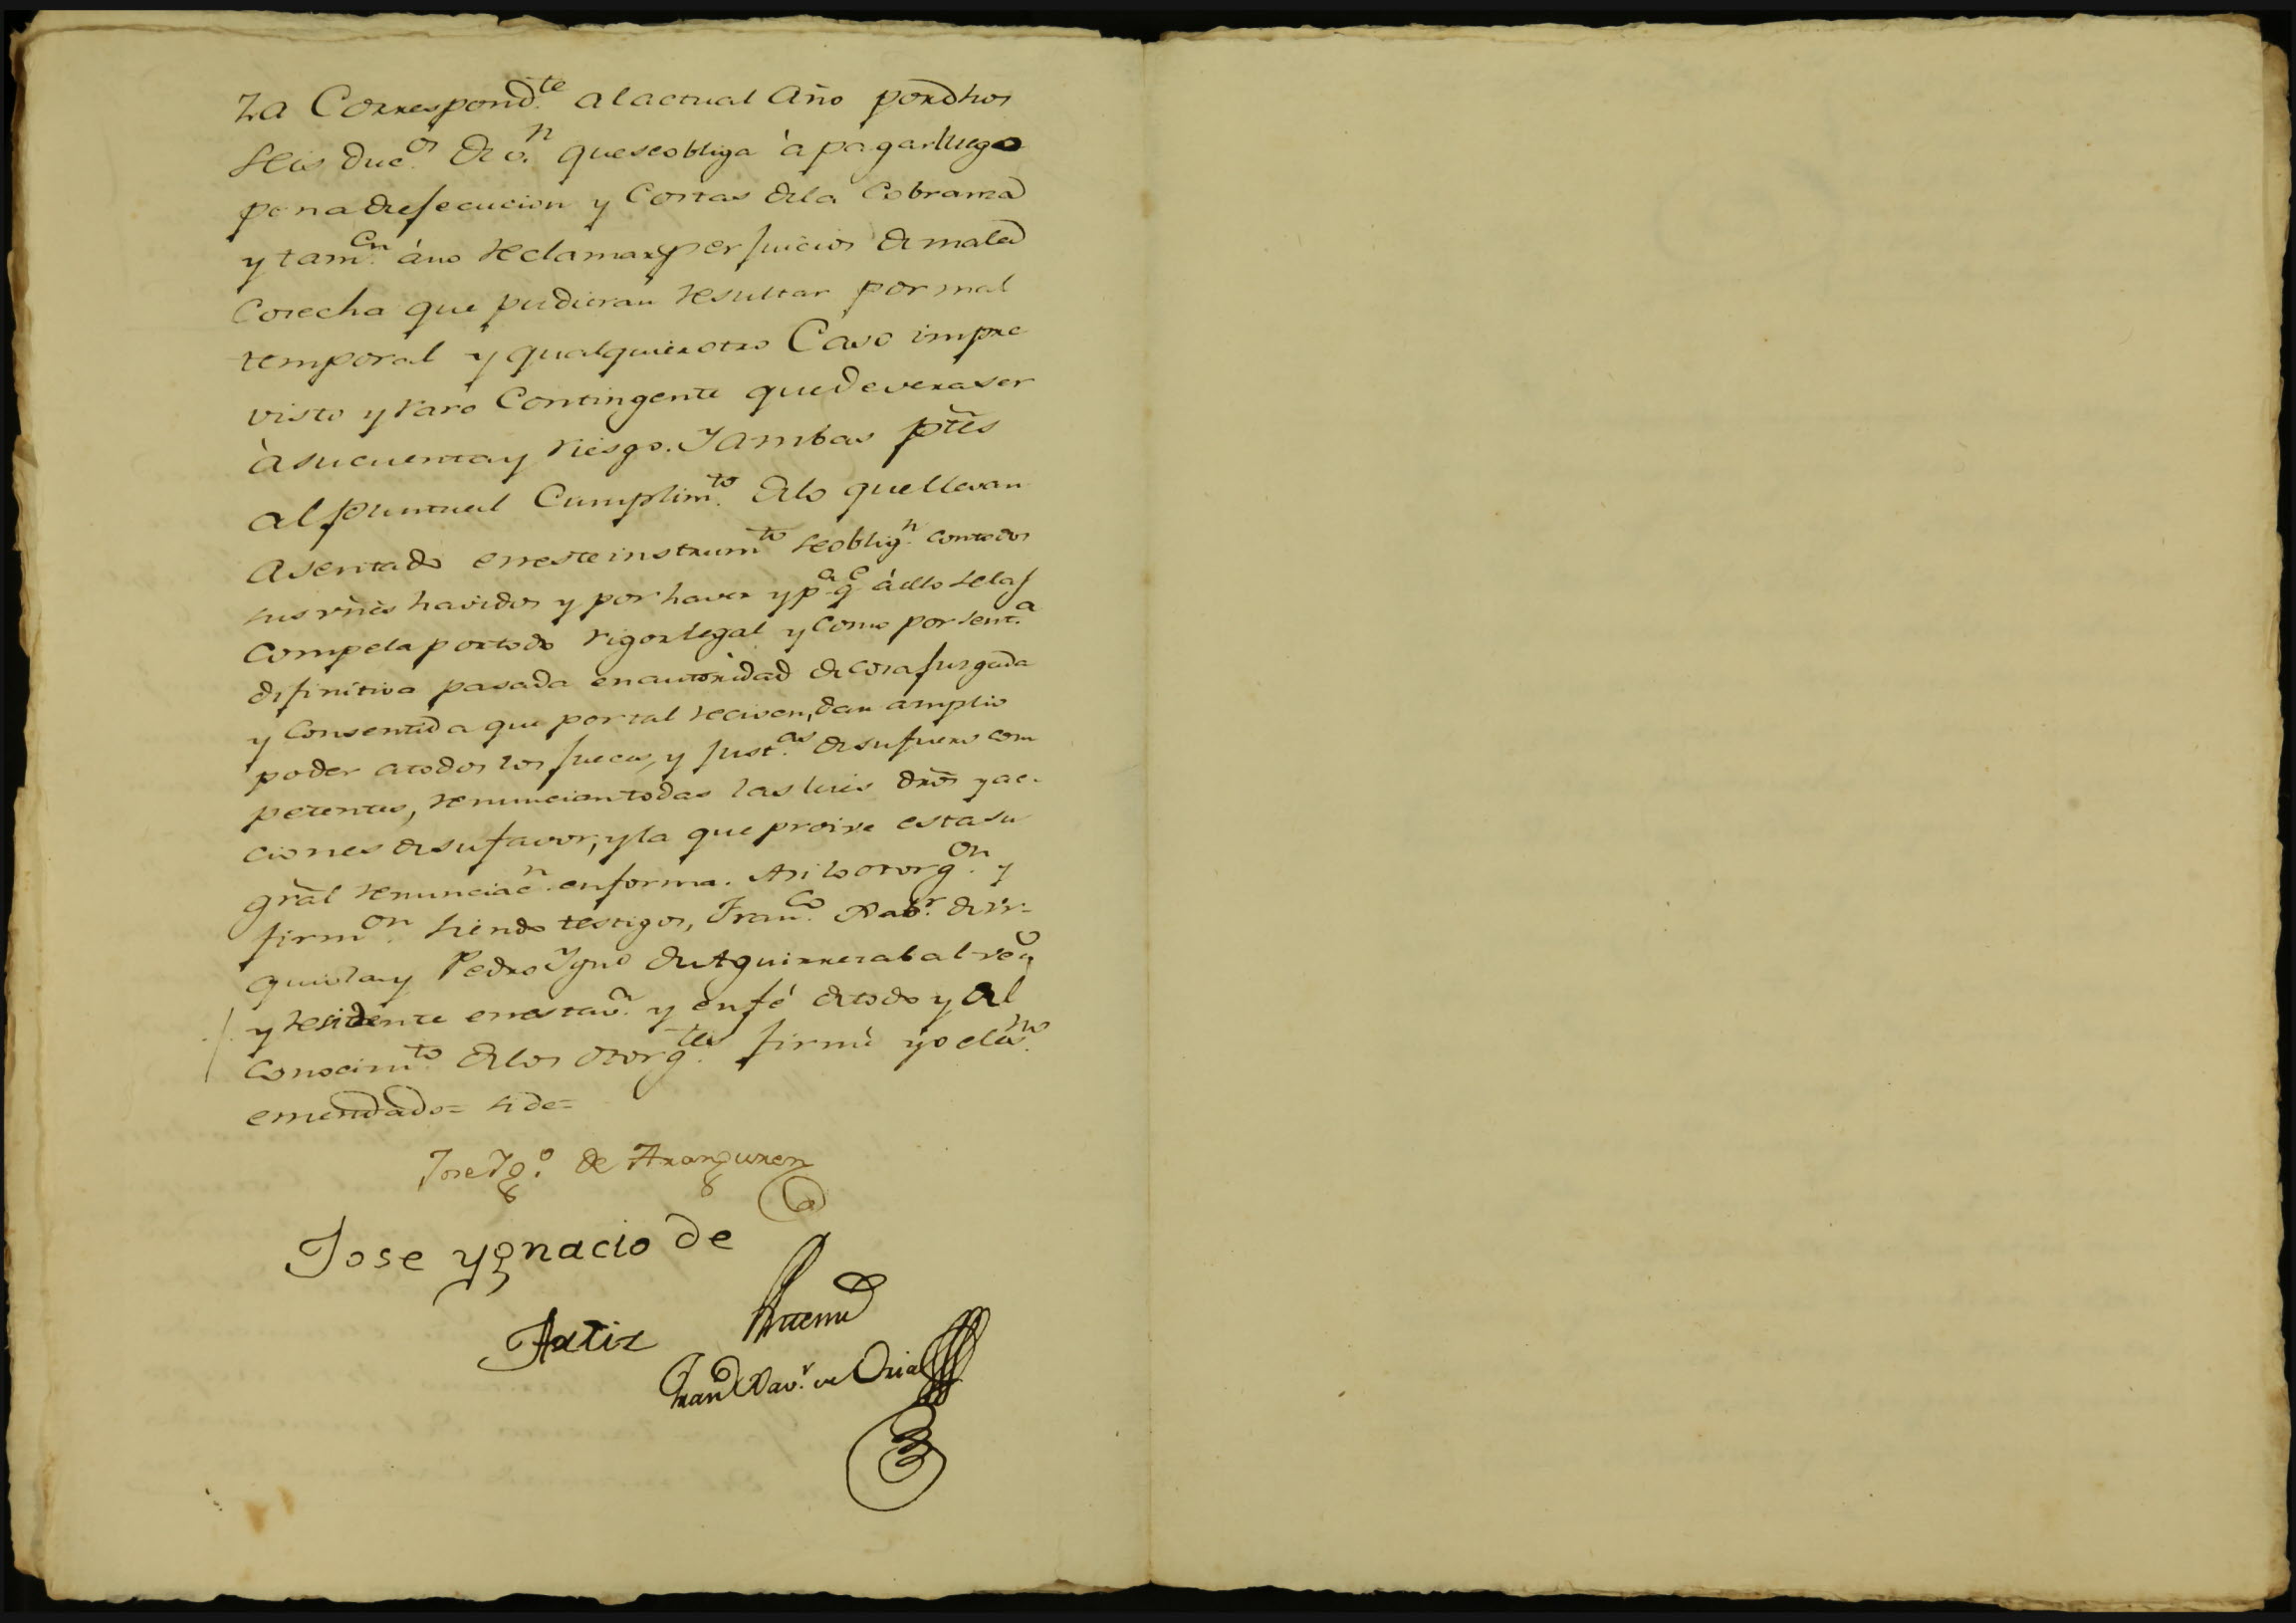 za Correspond.te al actual Año por dhos
seis duc.os de v.n que se obliga à pagar luego
pena de ejecucion y Costas de la Cobranza
y tam.en áno reclamar perjuicios de mala
Cosecha que pudieran resultar por mal
temporal y qualquier otro Caso impre
visto y raro Contingente que devera ser
à su cuenta y riesgo. Y ambas ptẽs
al puntual Cumplim.to de lo que llevan
asentado en este instrum.to se oblig.n con todos
sus vñès havidos y por haver y p.a q.e à ello se las
compela por todo rigor legal y como por sent.a
difinitiva pasada en autoridad de cosa juzgada
y Consentida que por tal reciven, dan amplio
poder a todos los Jueces, y Just.as de su fuero com
petentes, renuncian todas las leies drõs y ac-
ciones de su favor, y la que proive esta su
grãl renunciac.n en forma. Asi lo otorg.on y
firm.on siendo testigos, Fran.co Xab.r de Vr-
quiola y Pedro Ygn.o de Aguirrezabal vec.o
y residente en esta v.a y en fé de todo y del
Conocim.to de los otorg.tes firmè yo el es.no
emendado= side=
Jose Yg.o de Aranguren
Jose ygnacio de
Artiz
Ante mi
Fran.co Xav.r de Oria